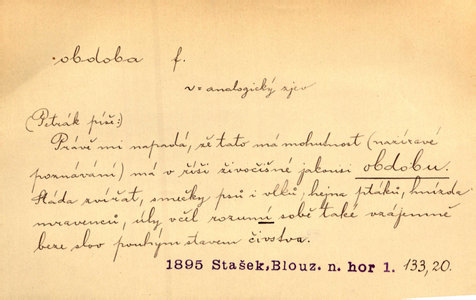 obdoba f.
v: analogický zjev
(Petrák píší:)
Právě mi napadá, že tato má mohutnost (nazíravé
poznávání) má v říši živočišné jakousi obdobu.
Stáda zvířat, smečky psů i vlků, hejna ptáků, hnízda
mravenců, úly včel rozumí sobě také vzájemně
beze slov pouhým stavem čivstva.
1895 Stašek, Blouz. n. hor 1. 133, 20.